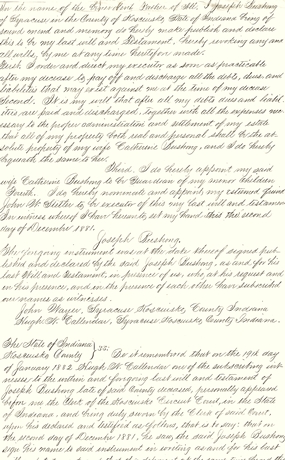 In the name of the Benevolent Father of All: I Joseph Bushong
of Syracuse in the County of Kosciusko, State of Indiana being of
sound mind and memory do hereby make publish and declare
this to be my last will and Testament, hereby revoking any and
all wills, by me at any time heretofore made.
First. I order and direct my executor as soon as practicable
after my decease to pay off and discharge all the debts, dues, and
liabilities that may exist against me at the time of my decease
Second. It is my will that after all my debts dues and liabil
ities are paid and discharged, together with all the expenses nec
essary to the proper administration and settlement of my estate
that all of my property both real and personal shall be the ab
solute property of my wife Catherine Bushong, and I do hereby
bequeath the same to her.
Third. I do hereby appoint my said
wife Catherine Bushong to be Guardian of my minor children
Fourth. I do hereby nominate and appoint my esteemed friend
John W. to be executor of this my last will and testament
In witness whereof I have hereunto set my hand this the second
day of December 1881.
Joseph Bushong.
The foregoing instrument was at the date thereof signed pub
lished and declared by the said Joseph Bushong, as and for his
last Will and Testament, in presence of us, who, at his request and
in his presence, and in the presence of each other have subscribed
our names as witnesses.
John Syracuse Kosciusko County Indiana
Hugh W. Callendar, Syracuse Kosciusko County Indiana.
The State of Indiana
Kosciusko County } SS: Be it remembered that on the 19th day
of January 1882 Hugh W. Callendar one of the subscribing wit
nesses to the within and foregoing last will and testament of
Joseph Bushong late of said County deceased, personally appeared
before me the Clerk of the Kosciusko Circuit Court, in the State
of Indiana, and being duly sworn by the Clerk of said Court,
upon his declared and testified as follows, that is to say: that on
the second day of December 1881, he saw the said Joseph Bushong
sign his name to said instrument in writing as and for his last